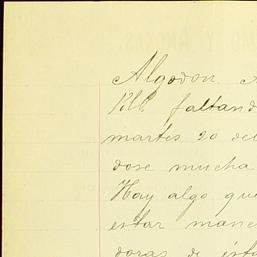 Algodon
faltand
martes 20 del
dose mucha
Hay algo que
estar manc
doras de ésta